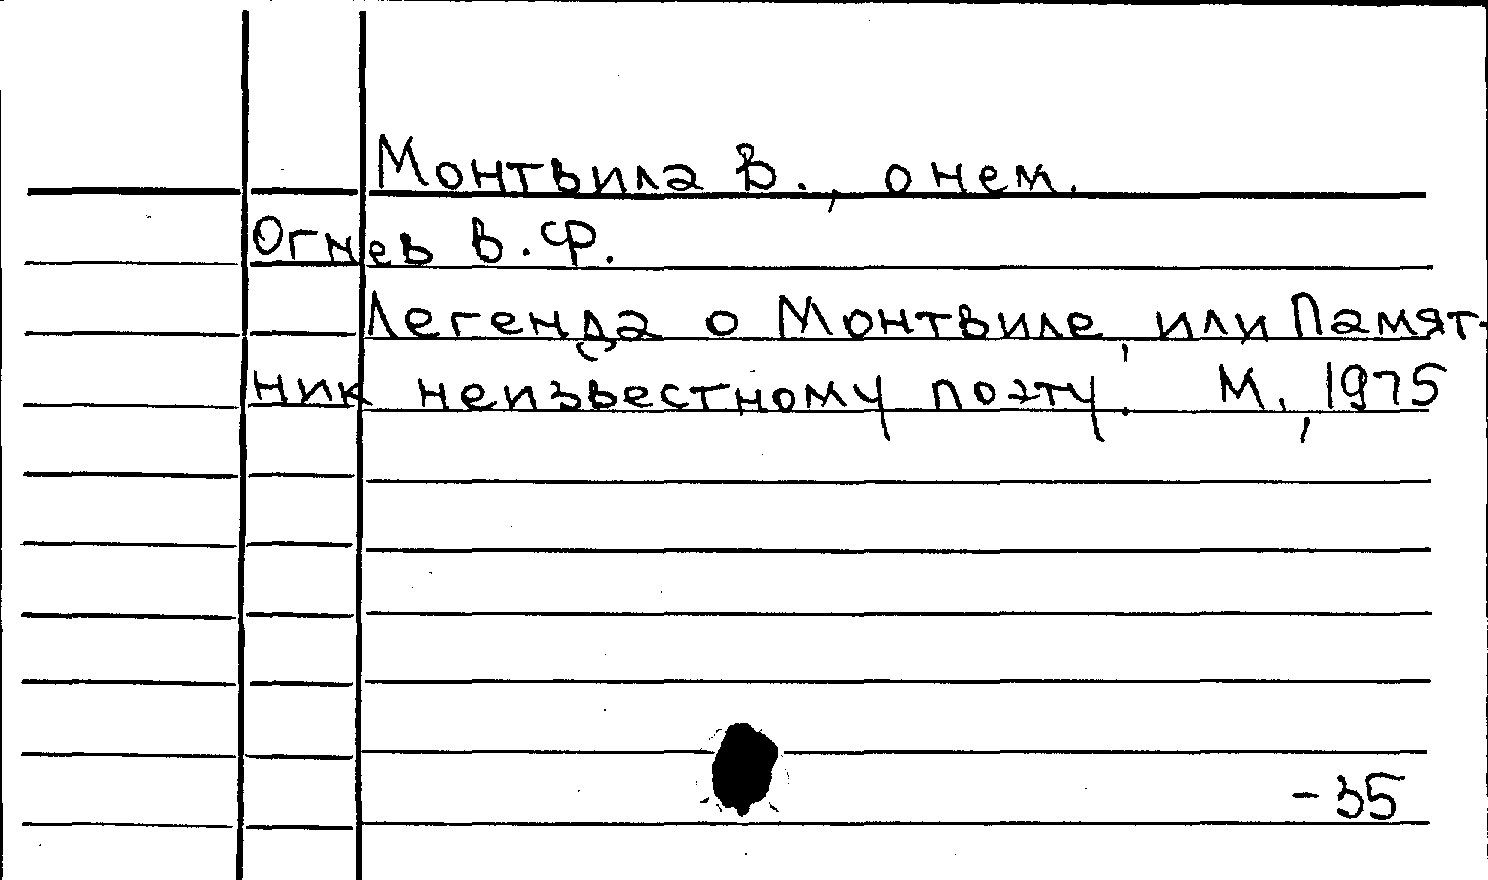 Монтвила В., о нем.
Огнев В.Ф.
Легенда о Монтвиле, или Памят-
ник неизвестному поэту. М., 1975
-35